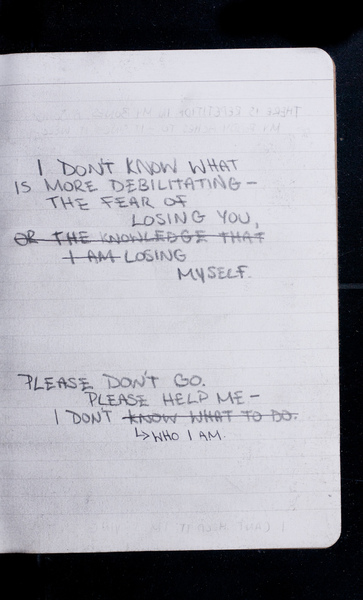 I DONT KNOW WHAT
IS MORE DEBILITATING –
THE FEAR OF
LOSING YOU,
OR THE KNOWLEDGE THAT
I AM LOSING
MYSELF.
PLEASE DON'T GO.
PLEASE HELP ME –
I DON'T KNOW WHAT TO DO.
↳ WHO I AM.